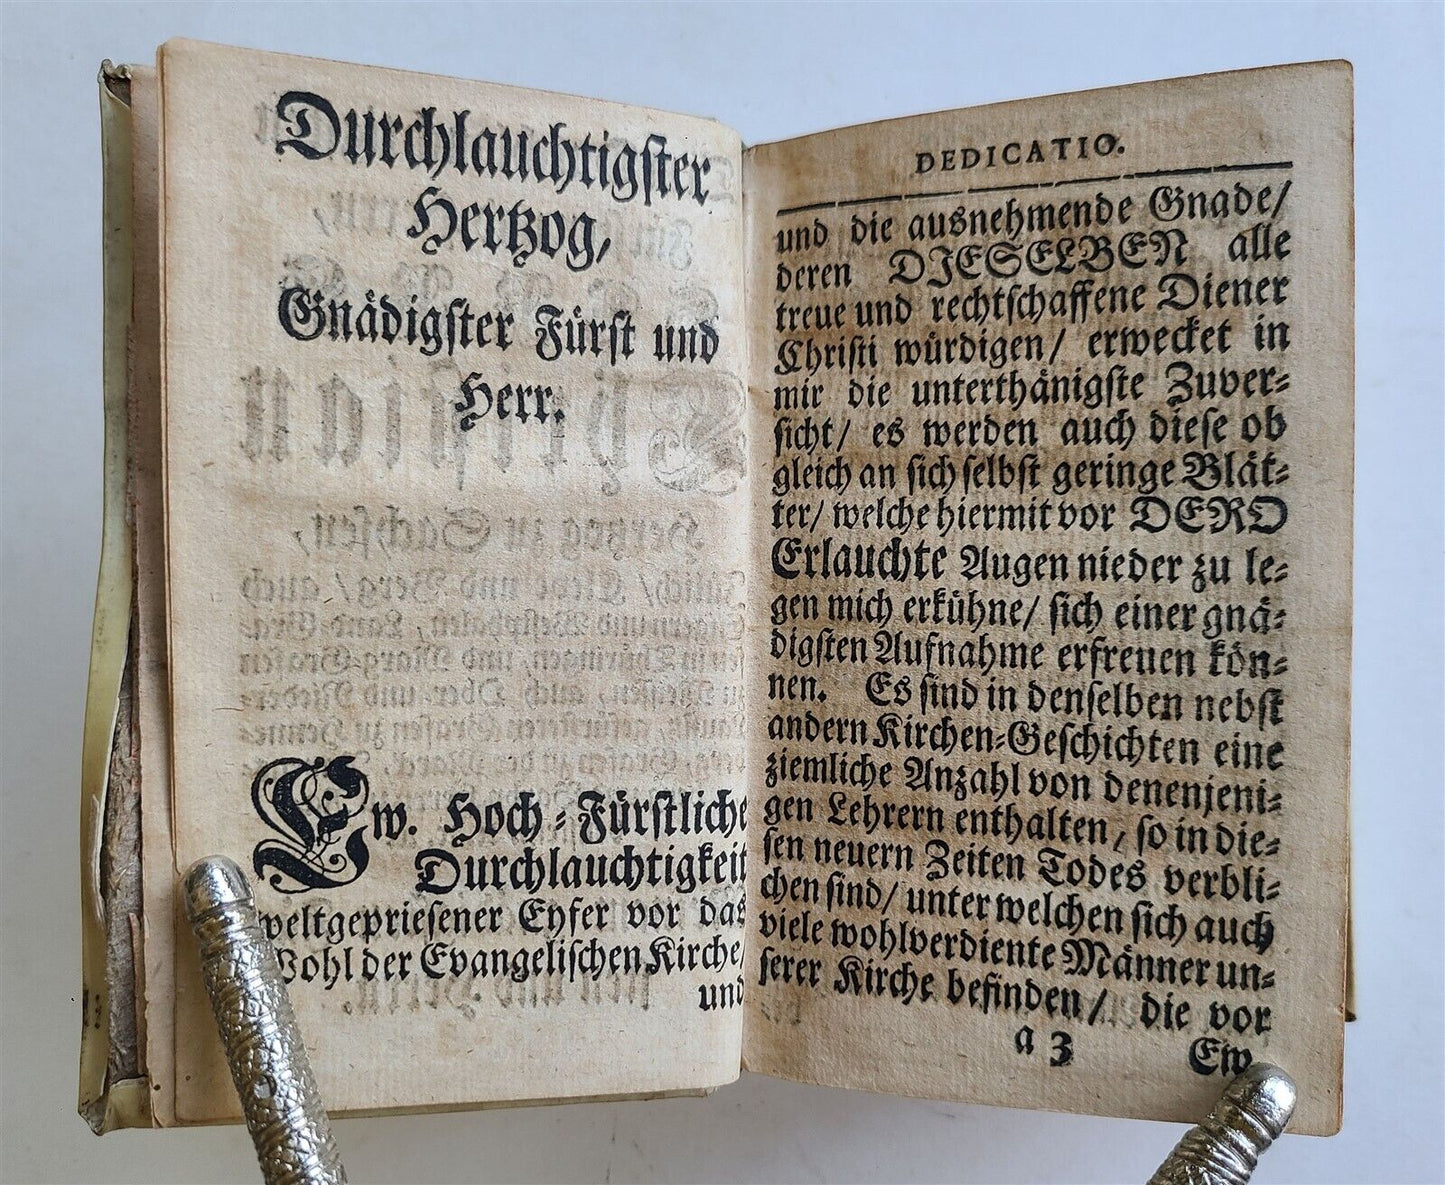 Durchlauchtigster
Hertzog,
Gnädigster Fürst und
Herr.
Ew. Hoch-Fürstliche
Durchlauchtigkeit
weltgepriesener Eyfer vor das
Wohl der Evangelischen Kirche/
und
DEDICATIO.
und die ausnehmende Gnade/
deren DIESELBEN alle
treue und rechtschaffene Diener
Christi würdigen/ erwecket in
mir die unterthänigste Zuver-
sicht/ es werden auch diese ob
gleich an sich selbst geringe Blät-
ter/ welche hiermit vor DERO
Erlauchte Augen nieder zu le-
gen mich erkühne/ sich einer gnä-
digsten Aufnahme erfreuen kön-
nen. Es sind in denselben nebst
andern Kirchen-Geschichten eine
ziemliche Anzahl von denenjeni-
gen Lehrern enthalten, so in die-
sen neuern Zeiten Todes verbli-
chen sind/ unter welchen sich auch
viele wohlverdiente Männer un-
serer Kirche befinden/ die vor
a 3 Ew.